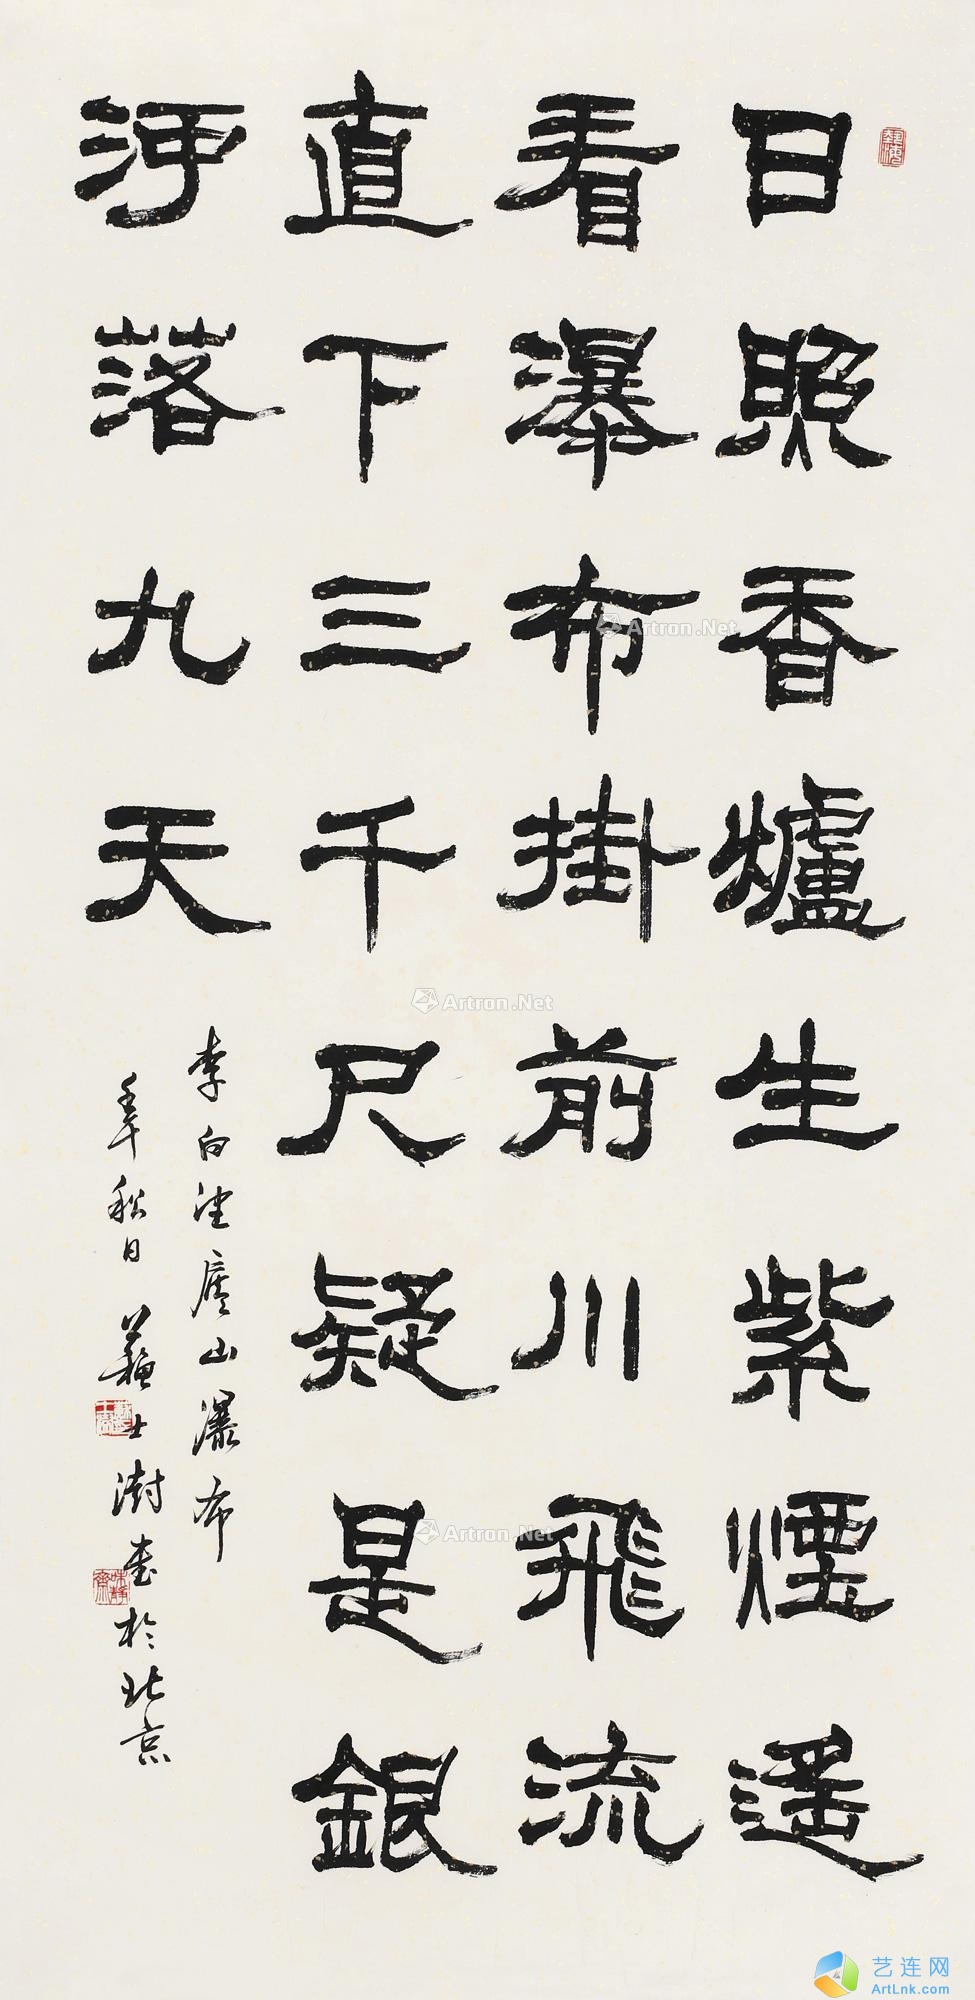 日照香爐生紫煙遙
看瀑布掛前川飛流
直下三千尺疑是銀
河落九天
李白望廬山瀑布
壬午秋日蘇士澍書於北京
味静齋
Artron.Net
Artron.Net
Artron.Net
艺连网
ArtLnk.com